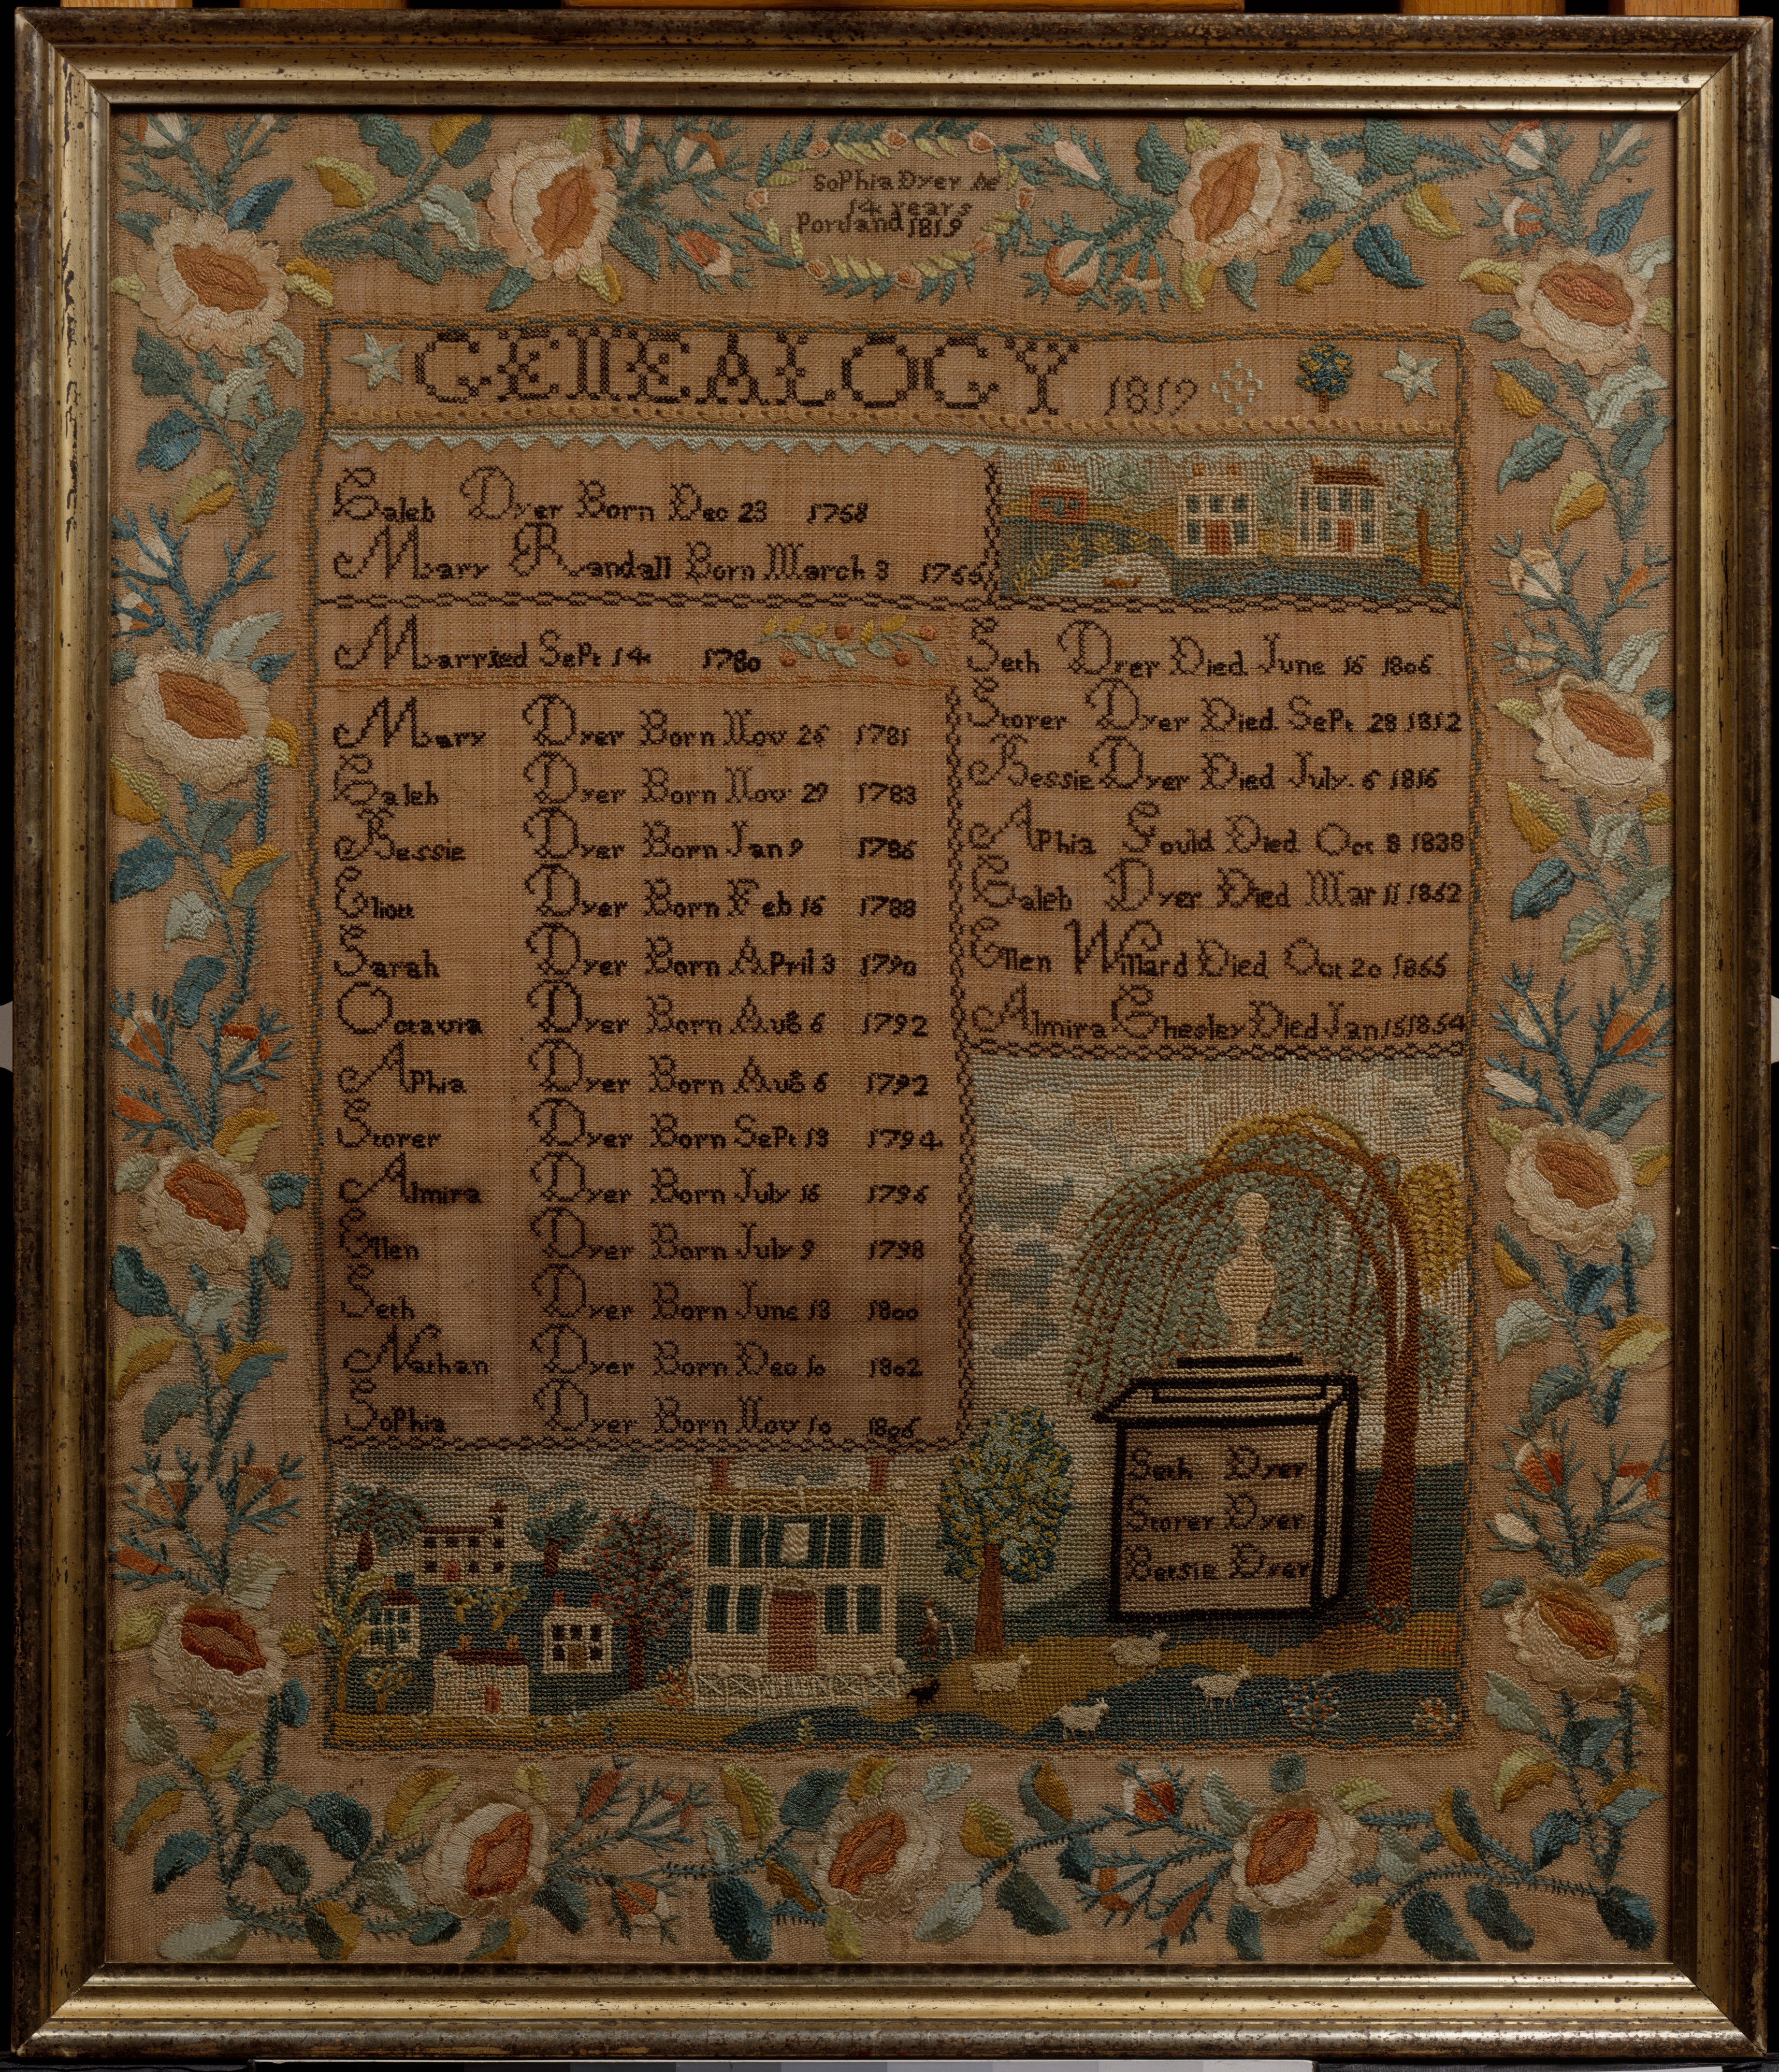 SoPhia Dyer Ae
14 years
Portland 1819
GENEALOGY 1819
Caleb Dyer Born Dec 23 1758
Mary Randall Born March 3 1766
Married SePt 14 1780
Mary Dyer Born Nov 26 1781
Caleb Dyer Born Nov 29 1783
Bessie Dyer Born Jan 9 1786
Eliott Dyer Born Feb 16 1788
Sarah Dyer Born APril 3 1790
Octavia Dyer Born Aug 6 1792
APhia Dyer Born Aug 6 1792
Storer Dyer Born SePt 13 1794
Almira Dyer Born July 16 1796
Ellen Dyer Born July 9 1798
Seth Dyer Born June 13 1800
Nathan Dyer Born Dec 10 1802
SoPhia Dyer Born Nov 10 1806
Seth Dyer Died June 16 1806
Storer Dyer Died SePt 28 1812
Bessie Dyer Died July. 6 1816
APhia Gould Died Oct 8 1838
Caleb Dyer Died Mar 11 1862
Ellen Willard Died Oct 20 1865
Almira Chesley Died Jan 15 1854
Seth Dyer
Storer Dyer
Betsie Dyer